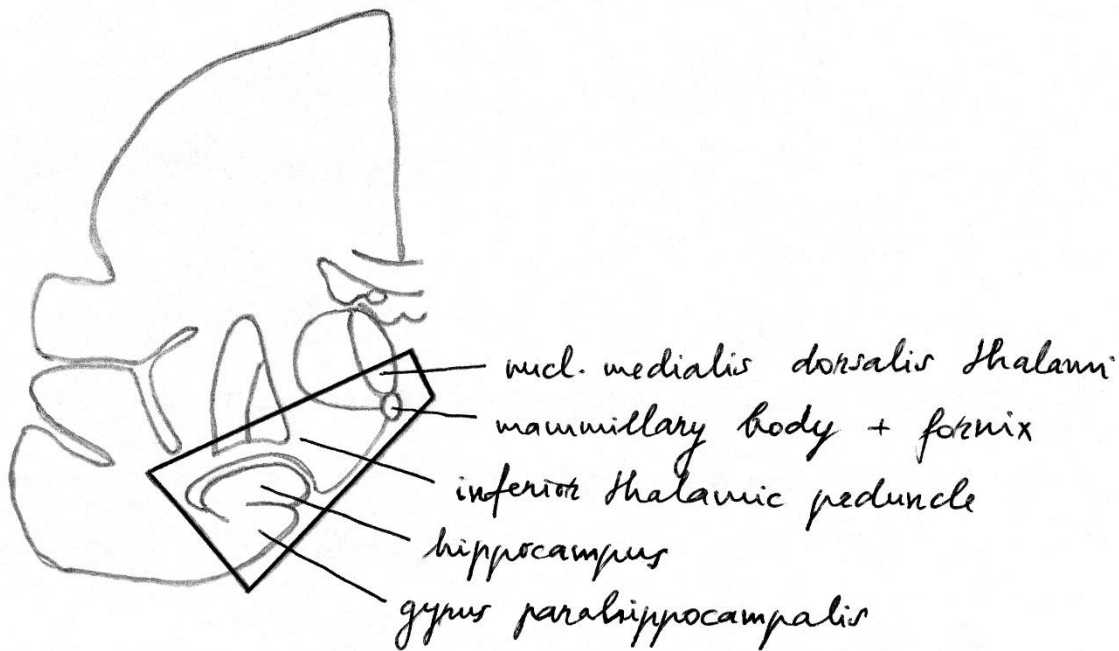 nucl. medialis dorsalis thalami
mammillary body + fornix
inferior thalamic peduncle
hippocampus
gyrus parahippocampalis